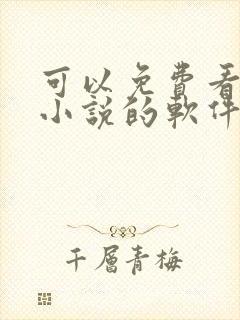 可以免費看
小説的軟件
千層青梅